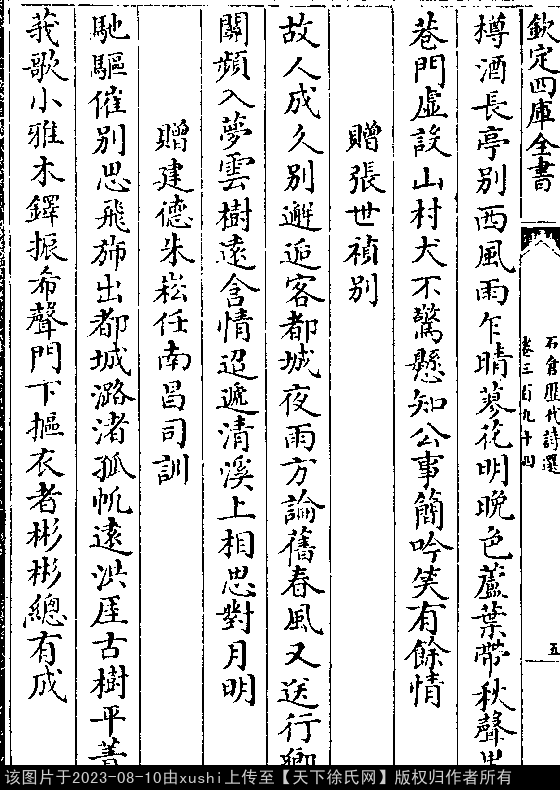 欽定四庫全書
石倉歷代詩選
卷三百九十四
五
樽酒長亭別西風雨乍晴蓼花明晚色蘆葉帶秋聲
巷門虛設山村犬不驚懸知公事簡吟笑有餘情
贈張世禎別
故人成久別邂逅客都城夜雨方論舊春風又送行鄉
關頻入夢雲樹遠含情迢遞清溪上相思對月明
贈建德朱崧任南昌司訓
馳驅催別思飛斾出都城潞渚孤帆遠洪厓古樹平菁
莪歌小雅木鐸振希聲門下摳衣者彬彬總有成
该图片于2023-08-10由xushi上传至【天下徐氏网】版权归作者所有